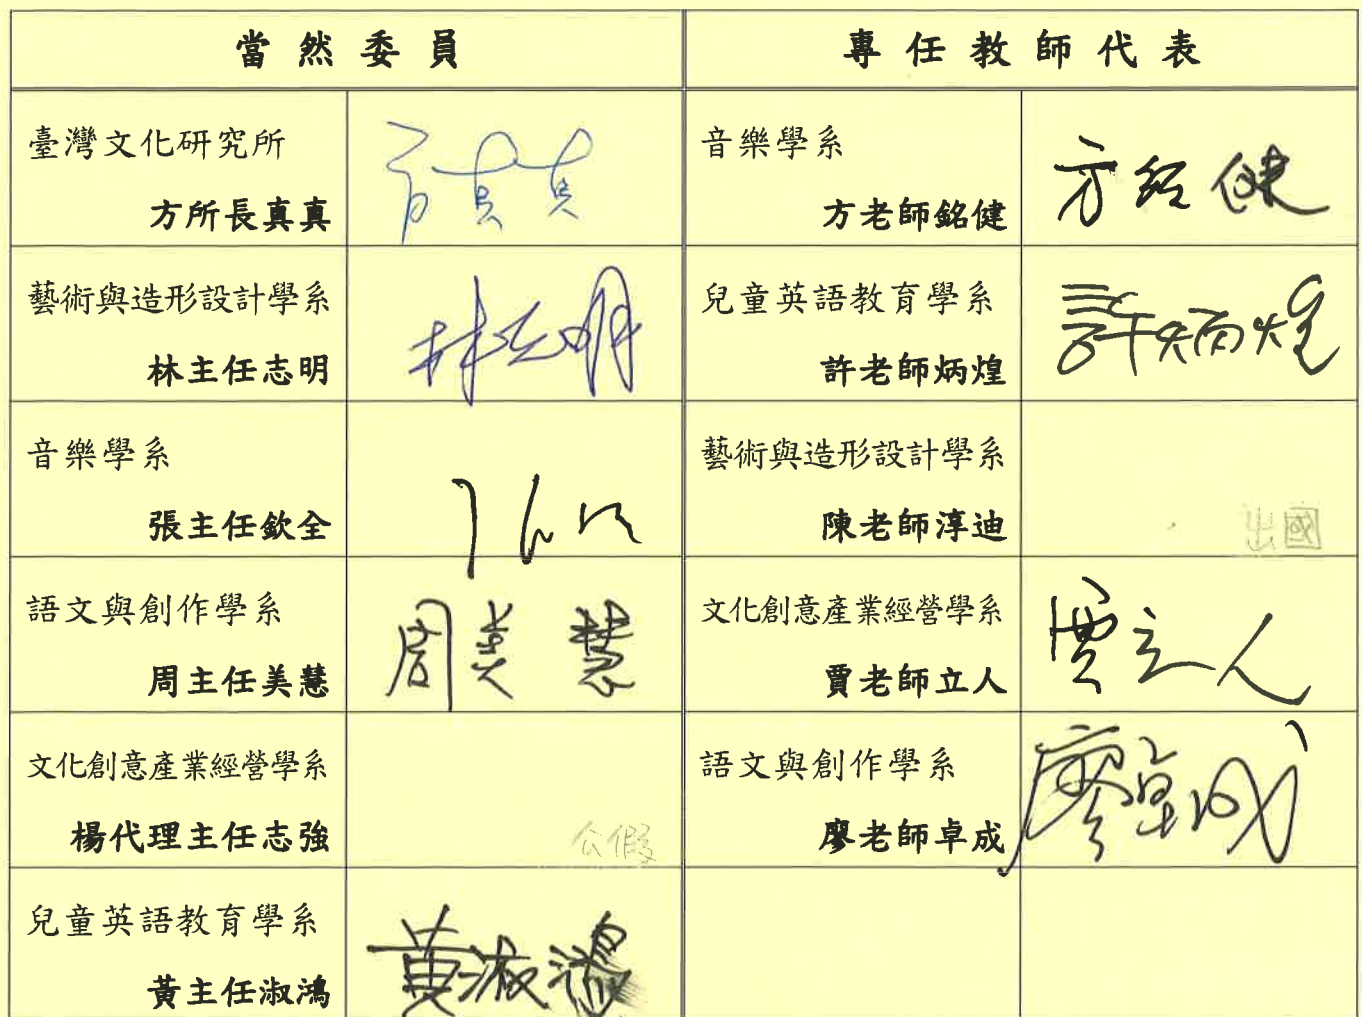 當然委員
專任教師代表
臺灣文化研究所
方所長真真
方真真
音樂學系
方老師銘健
方銘健
藝術與造形設計學系
林主任志明
林志明
兒童英語教育學系
許老師炳煌
許炳煌
音樂學系
張主任欽全
藝術與造形設計學系
陳老師淳迪
出國
語文與創作學系
周主任美慧
周美慧
文化創意產業經營學系
賈老師立人
賈立人
文化創意產業經營學系
楊代理主任志強
公假
語文與創作學系
廖老師卓成
廖卓成
兒童英語教育學系
黃主任淑鴻
黃淑鴻